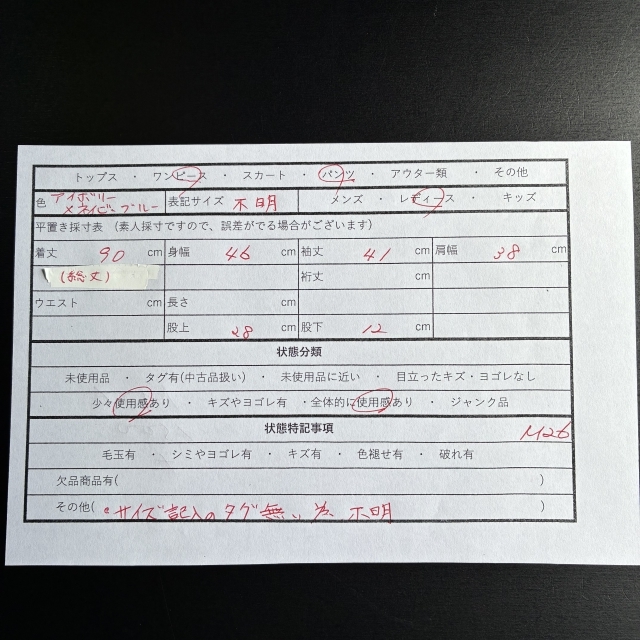 トップス ・ ワンピース ・ スカート ・ パンツ ・ アウター類 ・ その他
色 アイボリー×ネイビーブルー 表記サイズ 不明 メンズ ・ レディース ・ キッズ
平置き採寸表 (素人採寸ですので、誤差がでる場合がございます)
着丈 90 cm 身幅 46 cm 袖丈 41 cm 肩幅 38 cm
(総丈) 裄丈 cm
ウエスト cm 長さ cm
股上 28 cm 股下 12 cm
状態分類
未使用品 ・ タグ有(中古品扱い) ・ 未使用品に近い ・ 目立ったキズ・ヨゴレなし
少々使用感あり ・ キズやヨゴレ有 ・全体的に使用感あり ・ ジャンク品
状態特記事項 M26
毛玉有 ・ シミやヨゴレ有 ・ キズ有 ・ 色褪せ有 ・ 破れ有
欠品商品有( )
その他( •サイズ記入のタグ無い為 不明 )